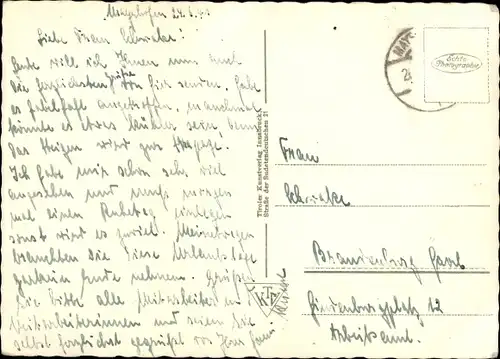 Mayrhofen 24.6.
Liebe Frau
Heute will ich Ihnen nun auch
die herzlichsten Grüße von hier senden. Habe
es fabelhaft angetroffen, manchmal
könnte es etwas kühler sein, denn
das Steigen wird zur
Ich habe mir schon sehr viel
angesehen und muß morgen
mal einen Ruhetag einlegen
sonst wird es zuviel. Meinetwegen
brauchten die diese Urlaubstage
gar kein Ende nehmen. Grüßen
Sie bitte alle Mitarbeiter und
Mitarbeiterinnen und seien Sie
selbst herzlichst gegrüßt von Ihrer
Tiroler Kunstverlag Innsbruck,
Straße der Sudetendeutschen 21
KTI
MAY
Echte
Photographie
Frau
Brandenburg Havel
Hindenburgplatz 12
Arbeitsamt.